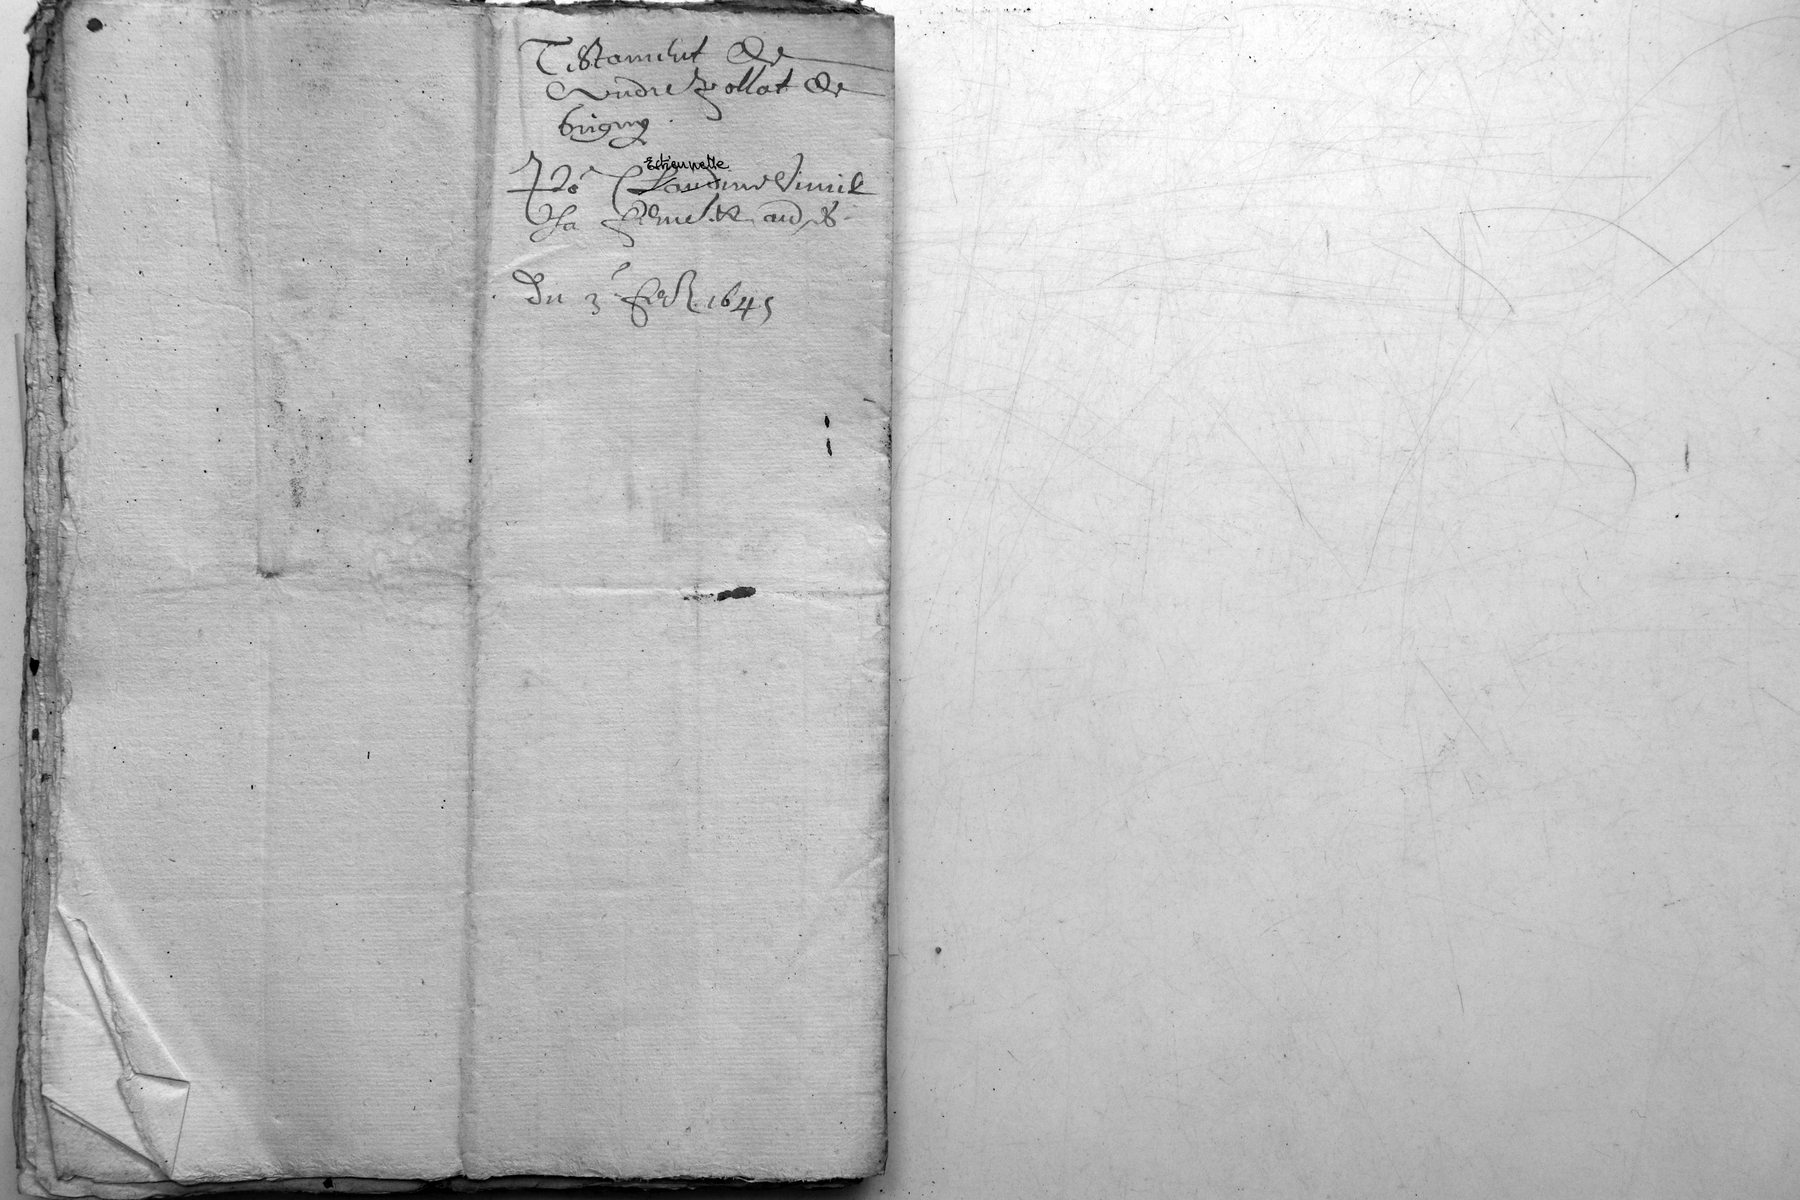 Testament de
Andre Jollat de
bugny
Po^r Estiennette Claudine Vinnit
sa femme
Du 3^e feb^r. 1645